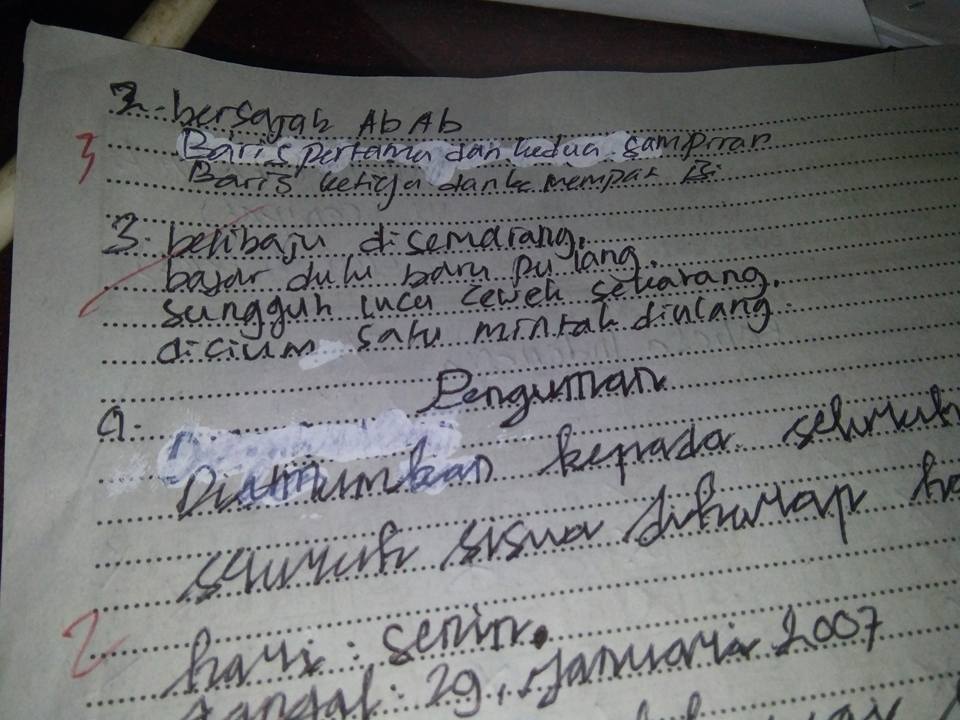 2. bersajak AbAb
Baris pertama dan kedua sampiran
3
Baris ketiga dan ke mempat isi
3. beli baju disemarang.
bayar dulu baru pulang.
sungguh lucu cewek sekarang.
dicium satu mintak diulang.
Penguman
9.
Diumumkan kepada seluruh
seluruh siswa diharap
2
hari : Senin.
tanggal : 29, Januari 2007